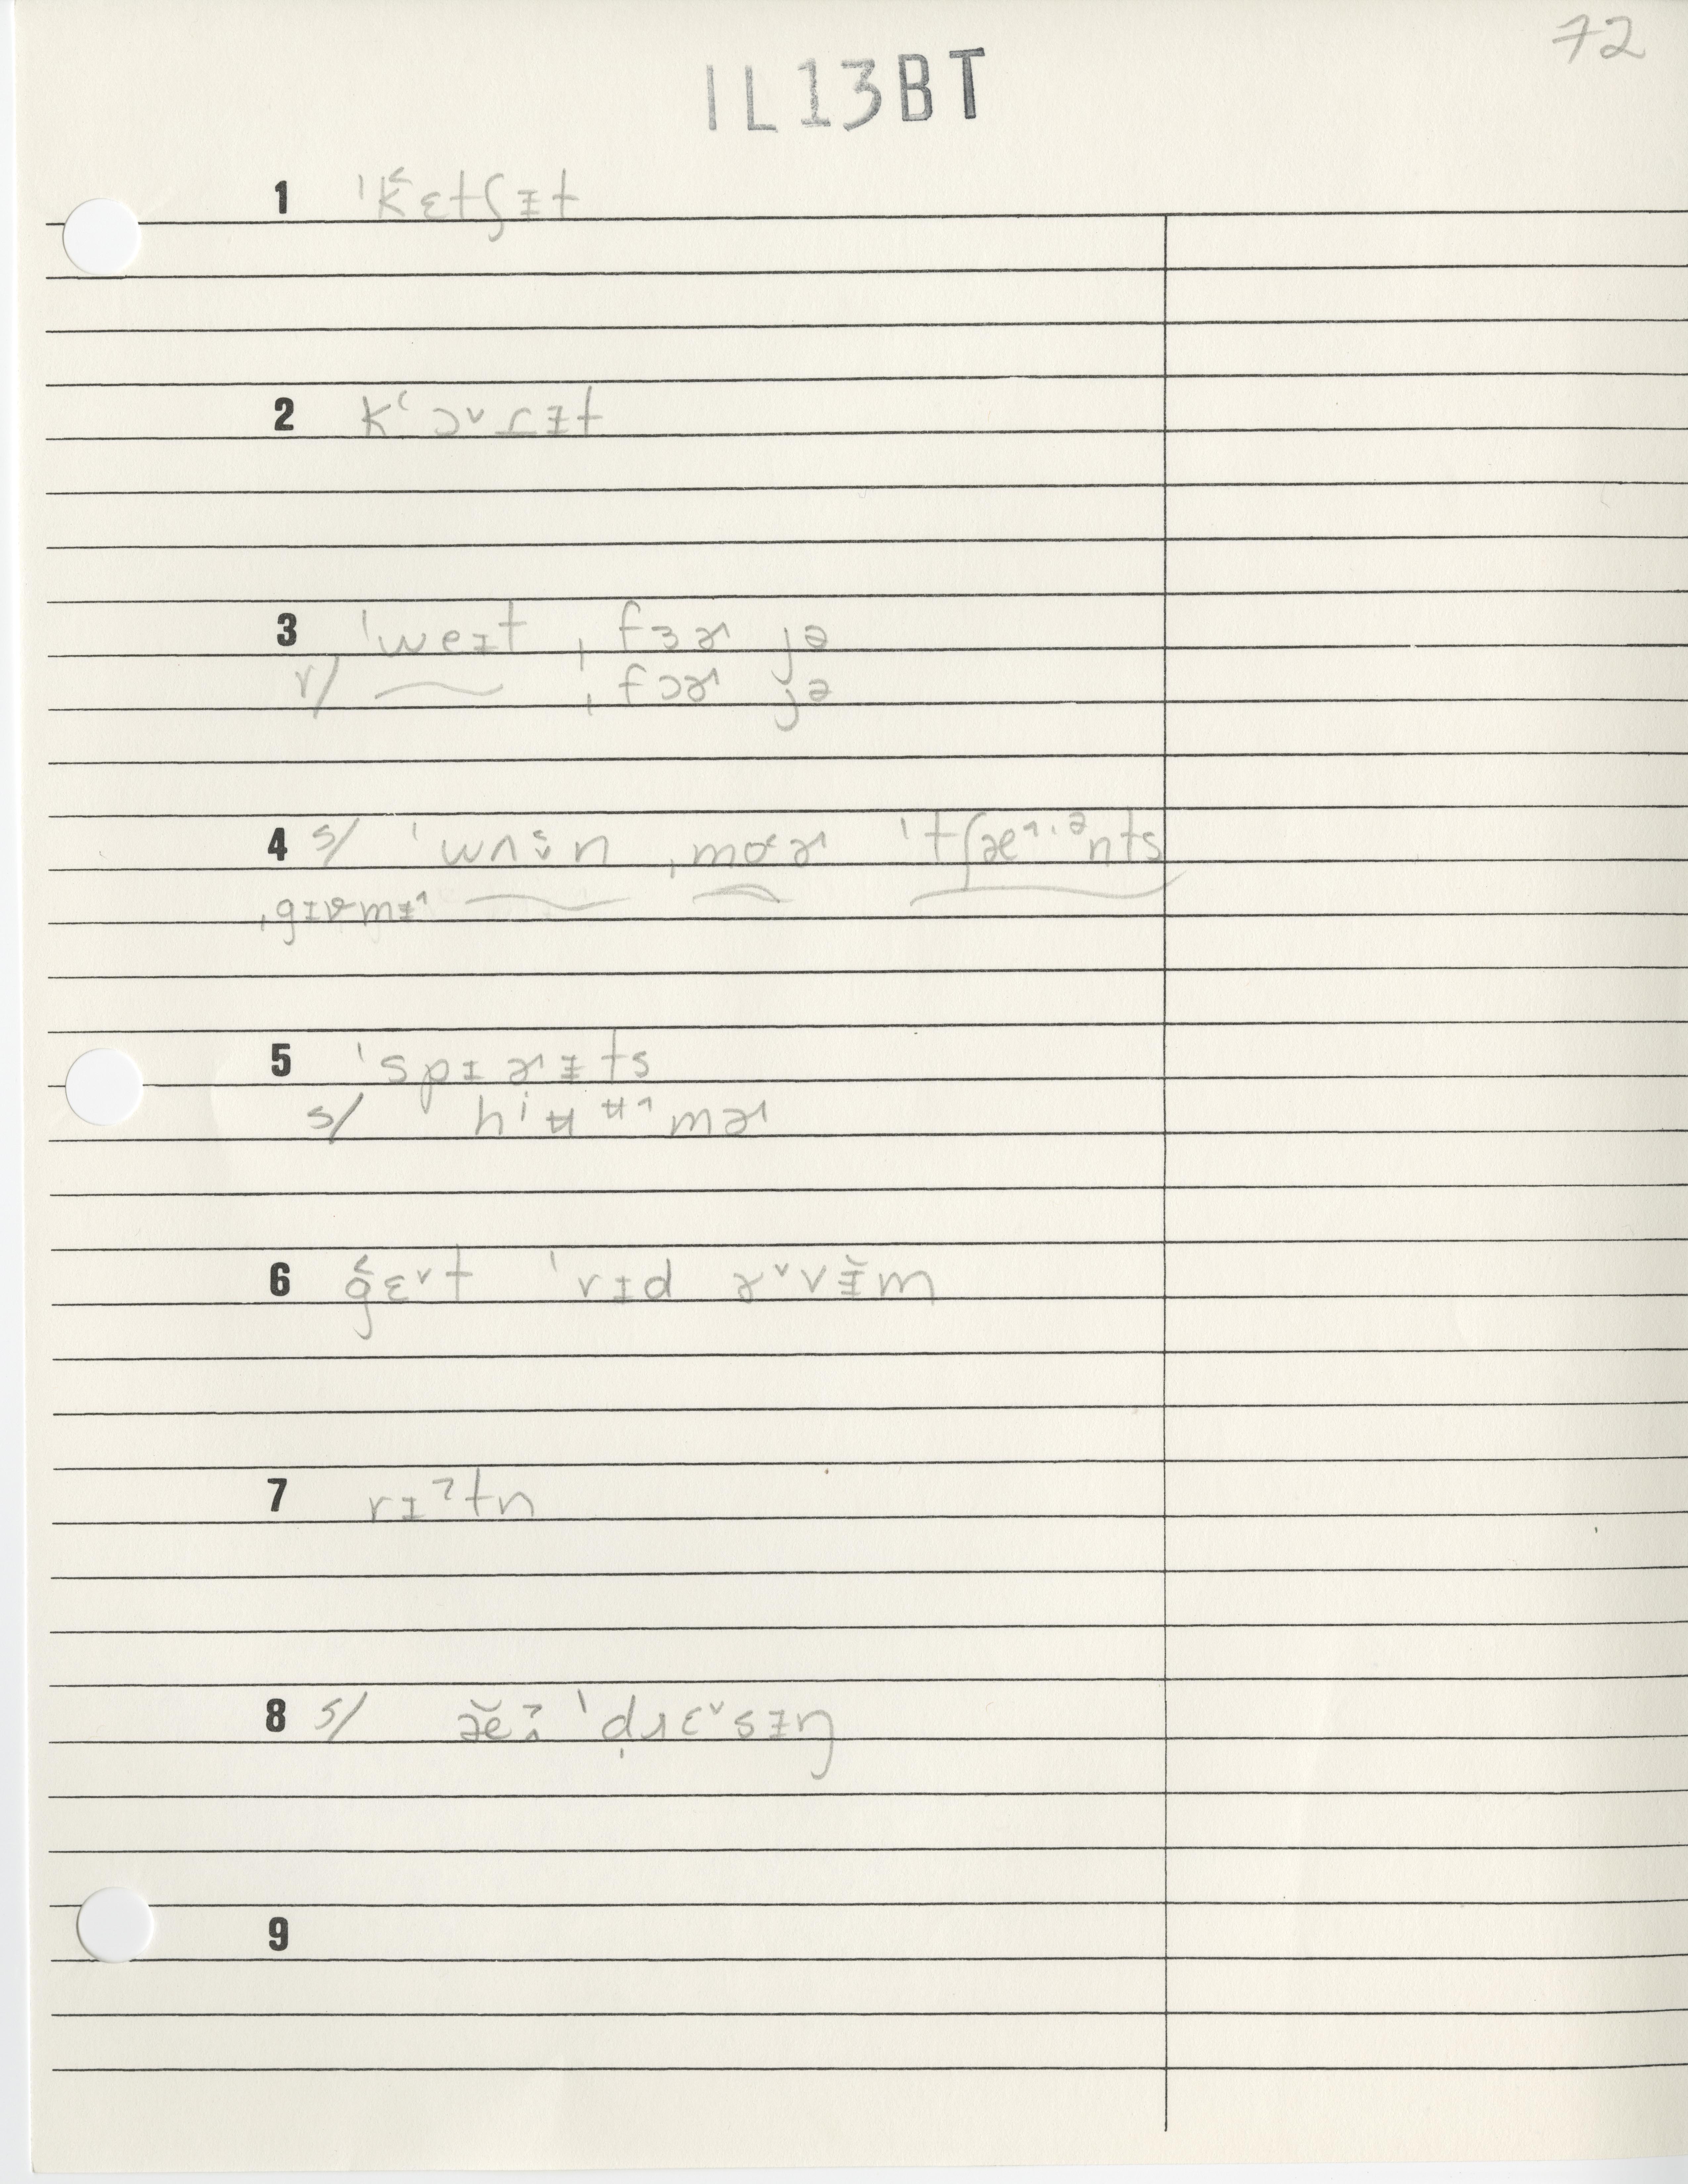 72
IL13BT
1 ˈk˂ɛtʃɪ̵t
2 kʻɔ˅ɾɪ̵t
3 ˈweɪt ˌfɜɚ jə
r/ ˌfɔɚ jə
4 s/ ˈwʌn ˌmoɚ ˈtʃæ^·ᵊnts
ˌgɪvmɪ̵^
5 ˈspɪɚɪ̵ts
s/ hjʉʉ^mɚ
6 g˂ɛ˅t ˈrɪd ɤ˅vɪ̵̆m
7 rɪˀtn
8 s/ ˈdɹɛ˅sɪ̵ŋ
9